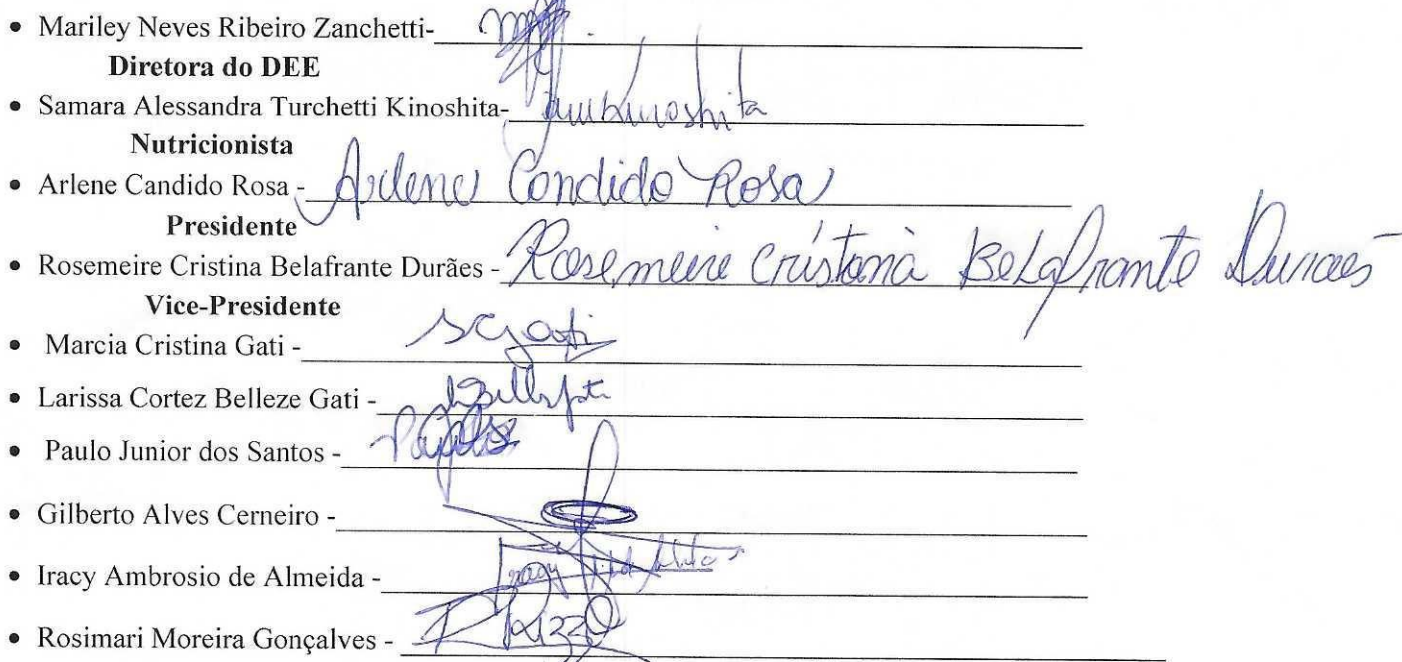 • Mariley Neves Ribeiro Zanchetti-
Diretora do DEE
• Samara Alessandra Turchetti Kinoshita- Kinoshita
Nutricionista
• Arlene Candido Rosa - Arlene Candido Rosa
Presidente
• Rosemeire Cristina Belafrante Durães - Rosemeire Cristana Belafrante Durães
Vice-Presidente
• Marcia Cristina Gati - Gati
• Larissa Cortez Belleze Gati -
• Paulo Junior dos Santos -
• Gilberto Alves Cerneiro -
• Iracy Ambrosio de Almeida -
• Rosimari Moreira Gonçalves -